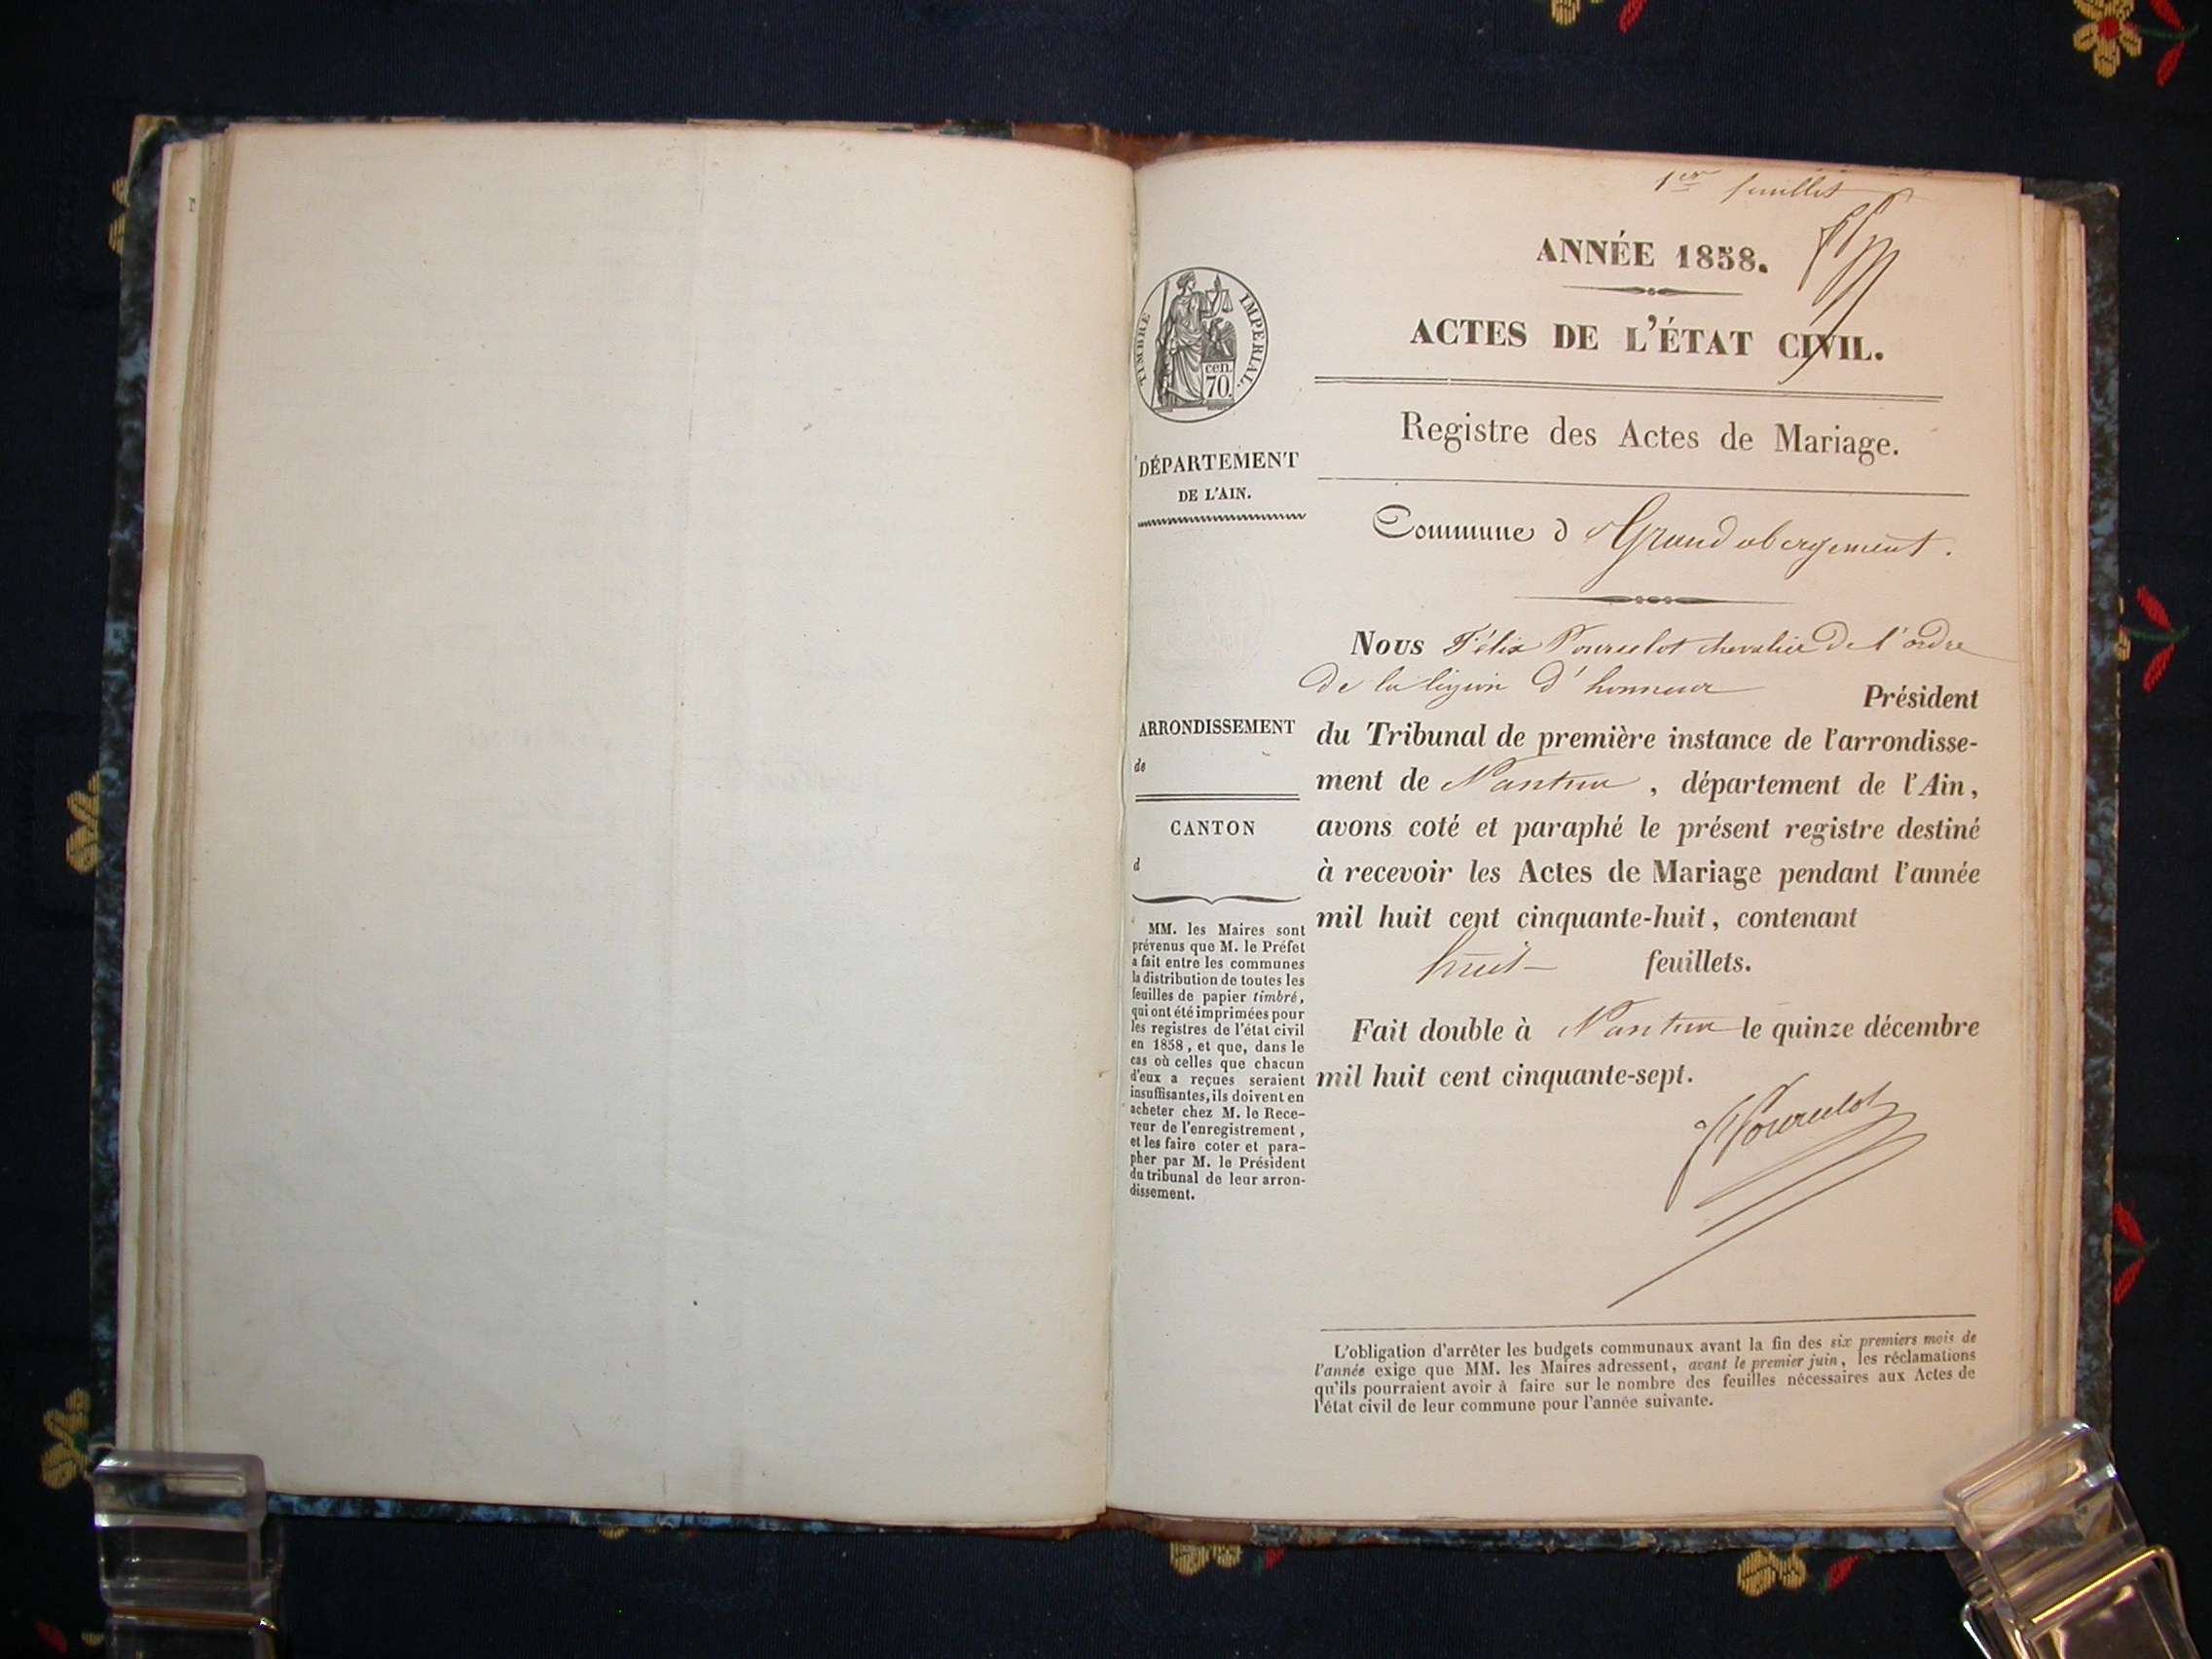 1er feuillet
ANNÉE 1858.
ACTES DE L'ÉTAT CIVIL.
TIMBRE IMPERIAL.
cen.
70.
Registre des Actes de Mariage.
DÉPARTEMENT
DE L'AIN.
Commune d Grand abergement.
Nous Félix Pourcelot chevalier De l'ordre
De la légion d'honneur Président
du Tribunal de première instance de l'arrondisse-
ment de Nantua, département de l'Ain,
avons coté et paraphé le présent registre destiné
à recevoir les Actes de Mariage pendant l'année
mil huit cent cinquante-huit, contenant
huit feuillets.
Fait double à Nantua le quinze décembre
mil huit cent cinquante-sept.
Pourcelot
ARRONDISSEMENT
de
CANTON
d
MM. les Maires sont
prévenus que M. le Préfet
a fait entre les communes
la distribution de toutes les
feuilles de papier timbré,
qui ont été imprimées pour
les registres de l'état civil
en 1858, et que, dans le
cas où celles que chacun
d'eux a reçues seraient
insuffisantes, ils doivent en
acheter chez M. le Rece-
veur de l'enregistrement,
et les faire coter et para-
pher par M. le Président
du tribunal de leur arron-
dissement.
L'obligation d'arrêter les budgets communaux avant la fin des six premiers mois de
l'année exige que MM. les Maires adressent, avant le premier juin, les réclamations
qu'ils pourraient avoir à faire sur le nombre des feuilles nécessaires aux Actes de
l'état civil de leur commune pour l'année suivante.